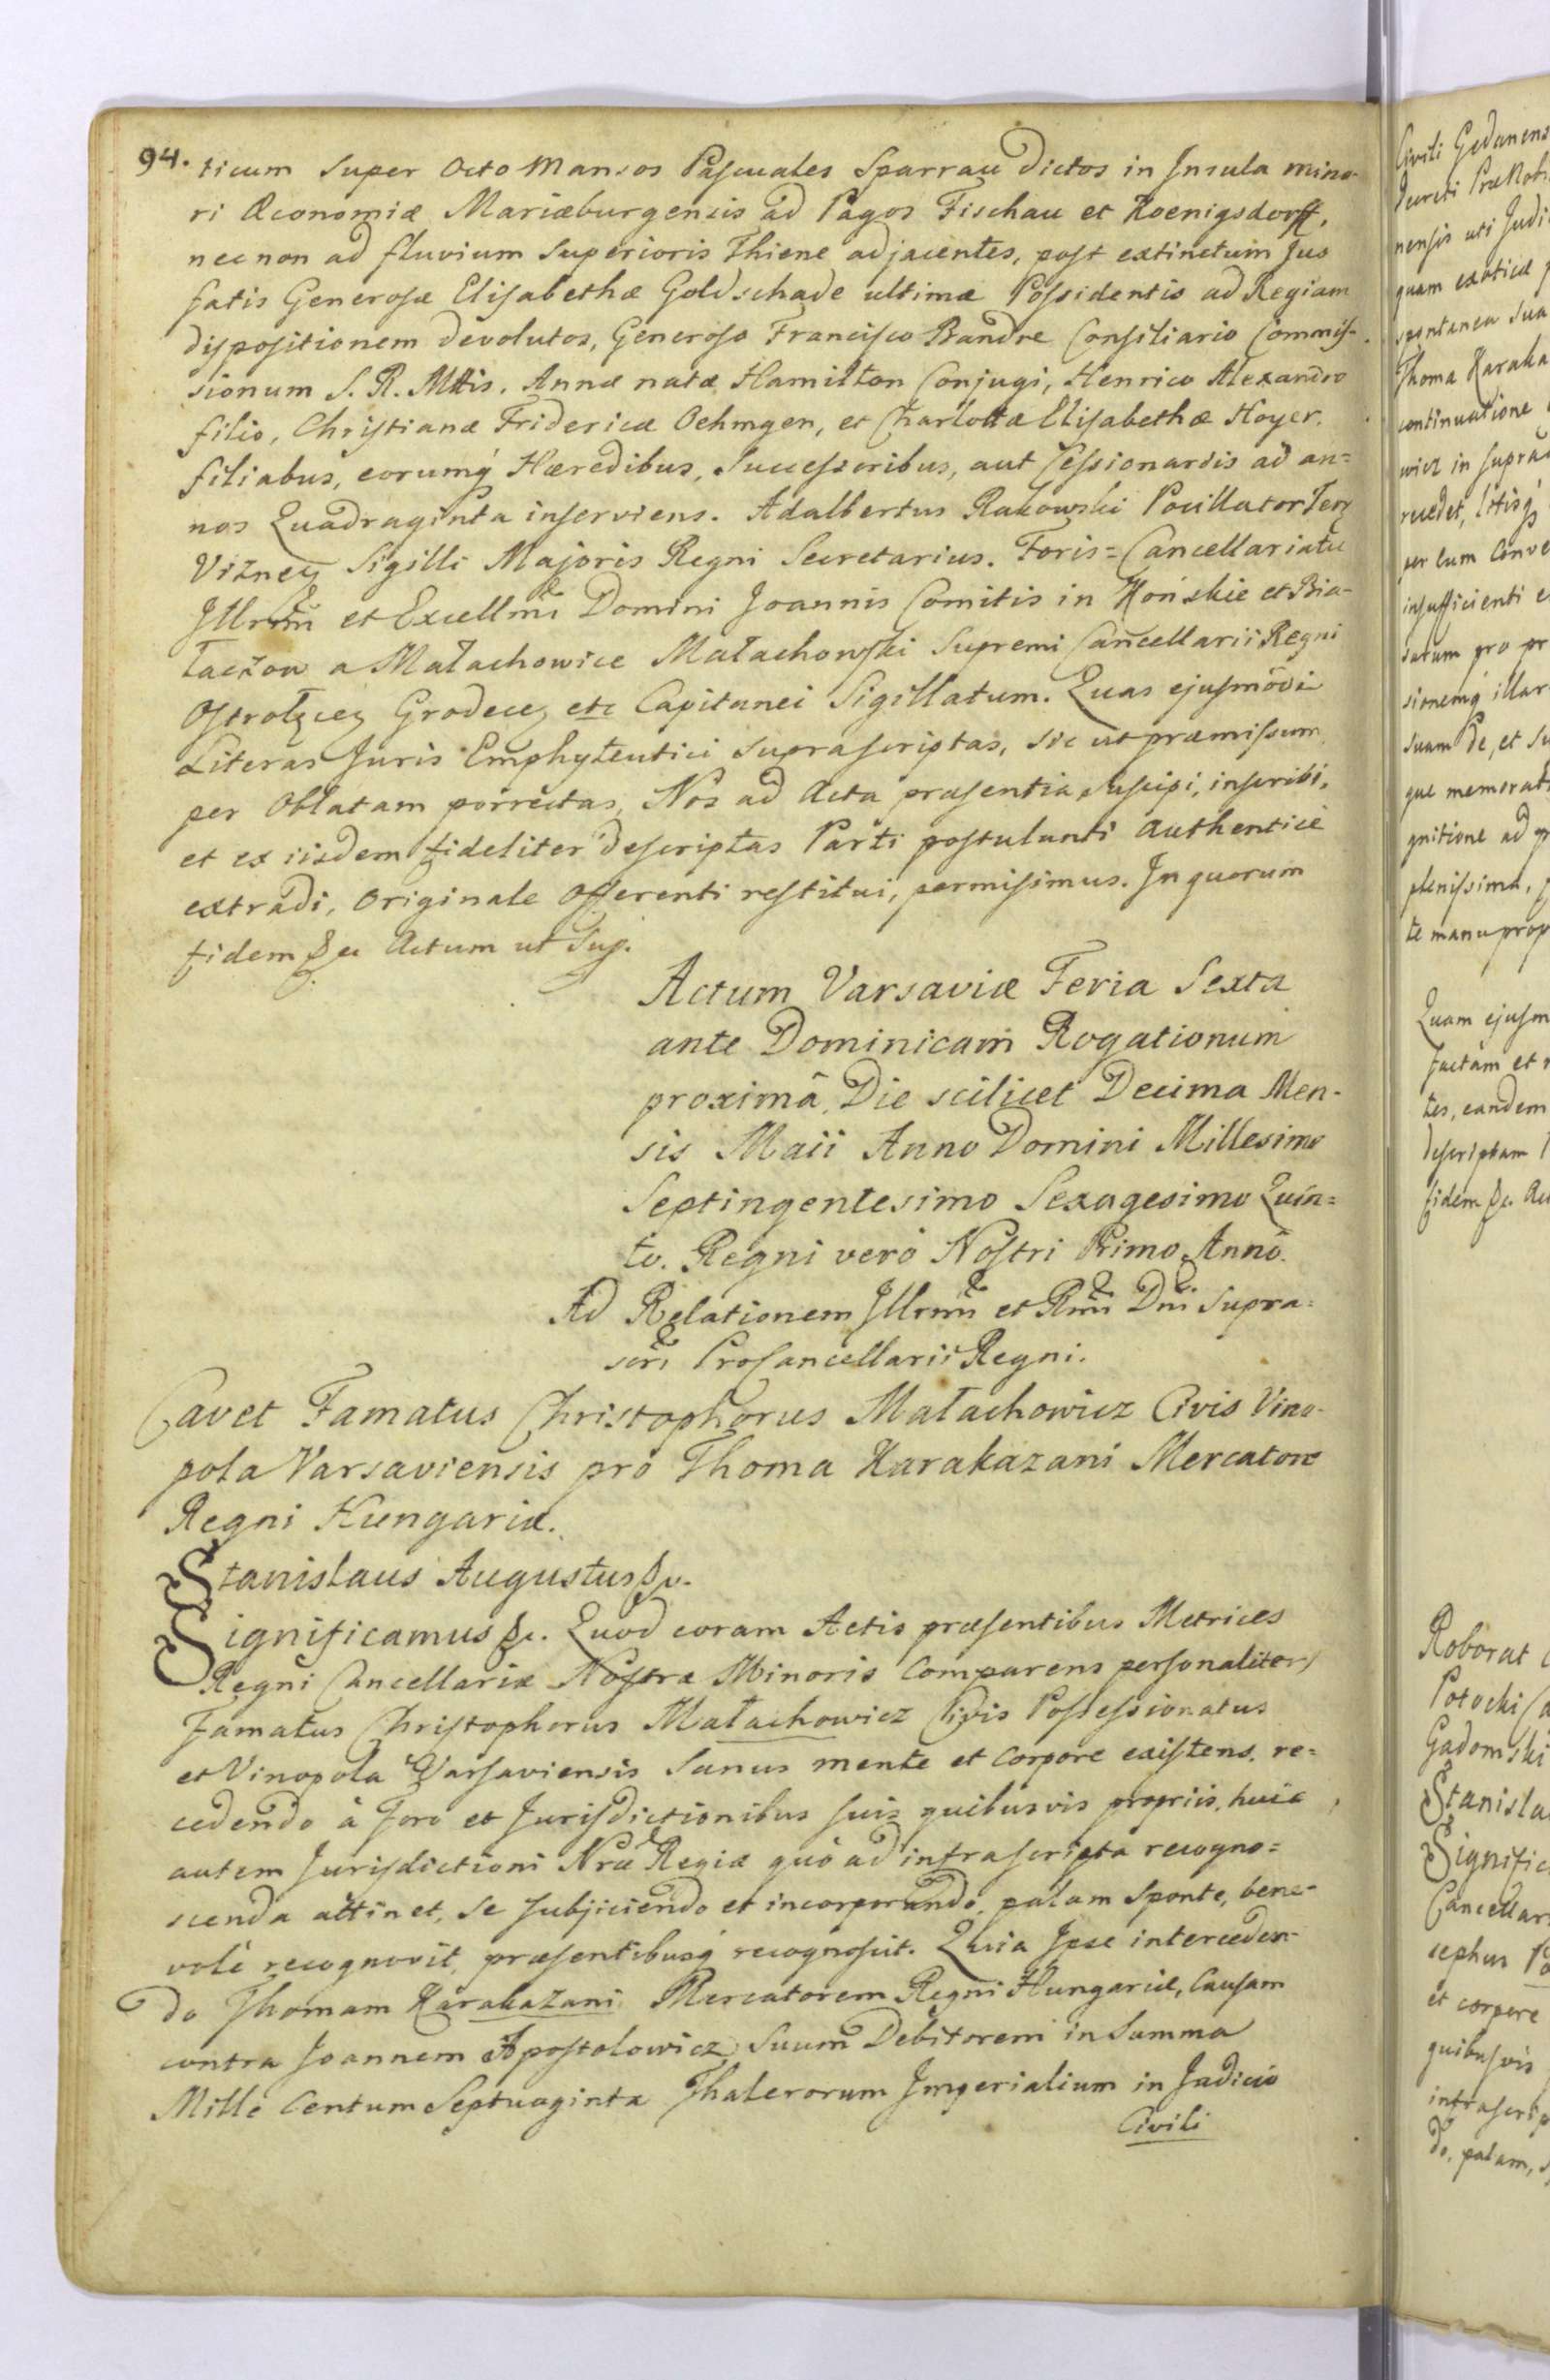 94. ticum super Octo Mansos Pascuales Sparrau dictos in Insula mino-
ri Œconomiæ Mariæburgensis ad Pagos Fischau et Koenigsdorff,
necnon ad fluvium superioris Thiene adjacentes, post extinctum Jus
fatis Generosæ Elisabethæ Goldschade ultimæ Possidentis ad Regiam
dispositionem devolutos, Generoso Francisco Brandre Consiliario Commis-
sionum S. R. Mttis. Annæ natæ Hamilton Conjugi, Henrico Alexandro
filio, Christianæ Fridericæ Oehmgen, et Charlottæ Elisabethæ Hoyer.
filiabus, eorumq́ Hæredibus, Successoribus, aut Cessionariis ad an=
nos Quadraginta inserviens. Adalbertus Rakowski Pocillator Terræ
Viznen Sigilli Majoris Regni Secretarius. Foris=Cancellariatu
Illrmi et Excellmi Domini Joannis Comitis in Końskie et Bia-
łaczow a Małachowice Małachowski Supremi Cancellarii Regni
Ostrołęcen Grodecen etc Capitanei Sigillatum. Quas ejusmodi
Literas Juris Emphyteutici suprascriptas, sic ut præmissum
per Oblatam porrectas, Nos ad Acta præsentia suscipi, inscribi,
et ex iisdem fideliter descriptas Parti postulanti authenticè
extradi, Originale Offerenti restitui, permisimus. In quorum
fidem &c Actum ut Sup.
Actum Varsaviæ Feria Sexta
ante Dominicam Rogationum
proximâ, Die scilicet Decima Men-
sis Maii Anno Domini Millesimo
Septingentesimo Sexagesimo Quin=
to. Regni verò Nostri Primo Annô.
Ad Relationem Illrmi et Rmi Dni supra=
scri ProCancellarii Regni.
Cavet Famatus Christophorus Małachowicz Civis Vino-
pola Varsaviensis pro Thoma Karakazani Mercatore
Regni Hungariæ.
Stanislaus Augustus &c.
Significamus &c. Quod coram Actis præsentibus Metrices
Regni Cancellariæ Nostræ Minoris Comparens personaliter
Famatus Christophorus Małachowicz Civis Possessionatus
et Vinopola Varsaviensis Sanus mente et Corpore existens, re=
cedendo à foro et Jurisdictionibus suis quibusvis propriis, huic
autem Jurisdictioni Nræ Regiæ quò ad infrascripta recogno=
scenda attinet, se subjiciendo et incorporando, palam sponte, bene-
volè recognovit, præsentibusq́ recognoscit. Quia Ipse interceden-
do Thomam Karakazani Mercatorem Regni Hungariæ, Causam
contra Joannem Apostolowicz Suum Debitorem in Summa
Mille Centum Septuaginta Thalerorum Imperialium in Judicio
Civili
Civili Gedanens
Decreti
nensis uti Judi
quam exoticæ
spontanea sua
Thoma Karaka
continuatione
wicz in supra
recedet, litisq́
per eum Conve
insufficienti e
pro pr
sionemq́ illar
suam de, et su
que memorat
gnitione ad
plenissima,
te manu prop
Quam ejusm
factam et r
tes, eandem
descriptam
fidem &c. Ac
Roborat
Potocki
Gadomski
Stanisla
Signific
Cancellar
sephus
et corpore
quibusvis
infrascrip
do, palam,